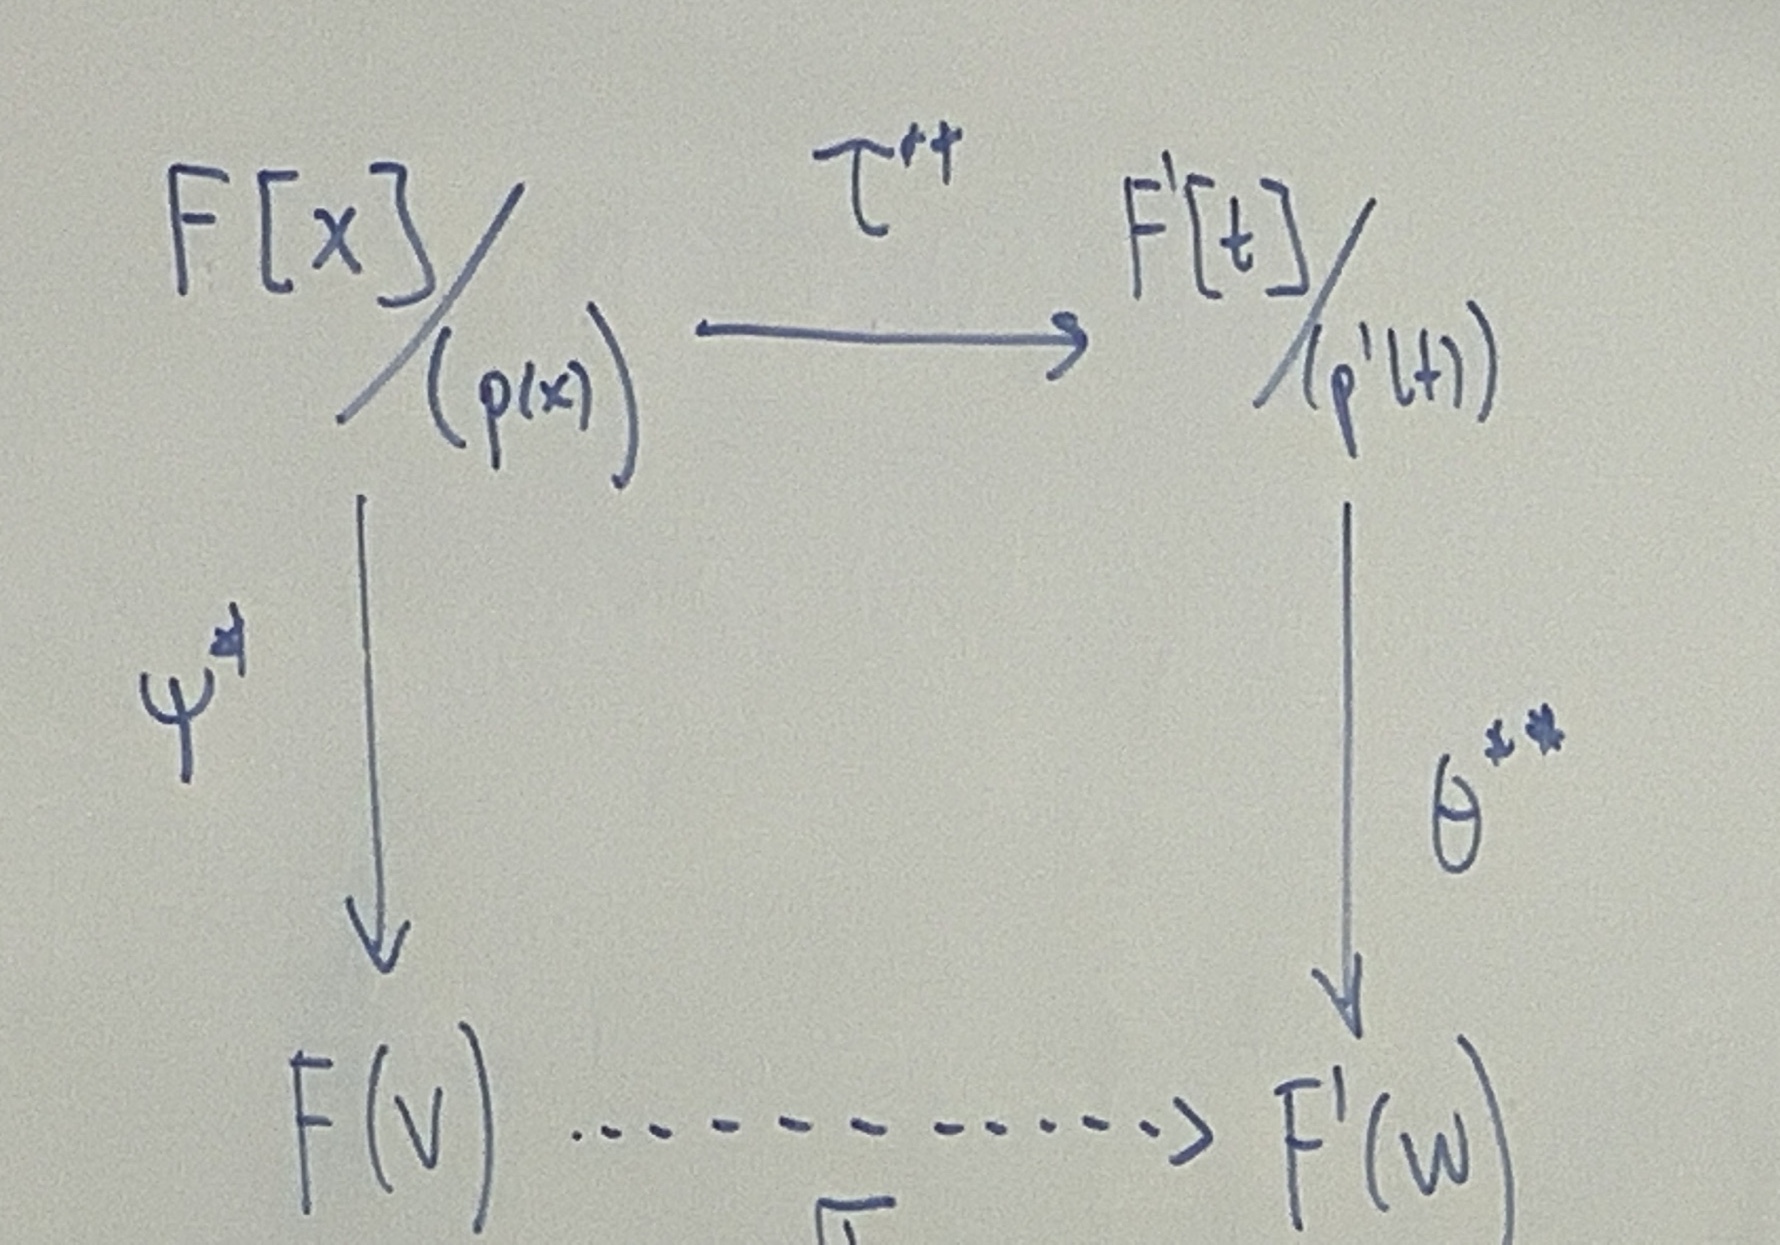 F[x]/(p(x)) τ** F'[t]/(p'(t))
ψ* θ**
F(v) F'(w)